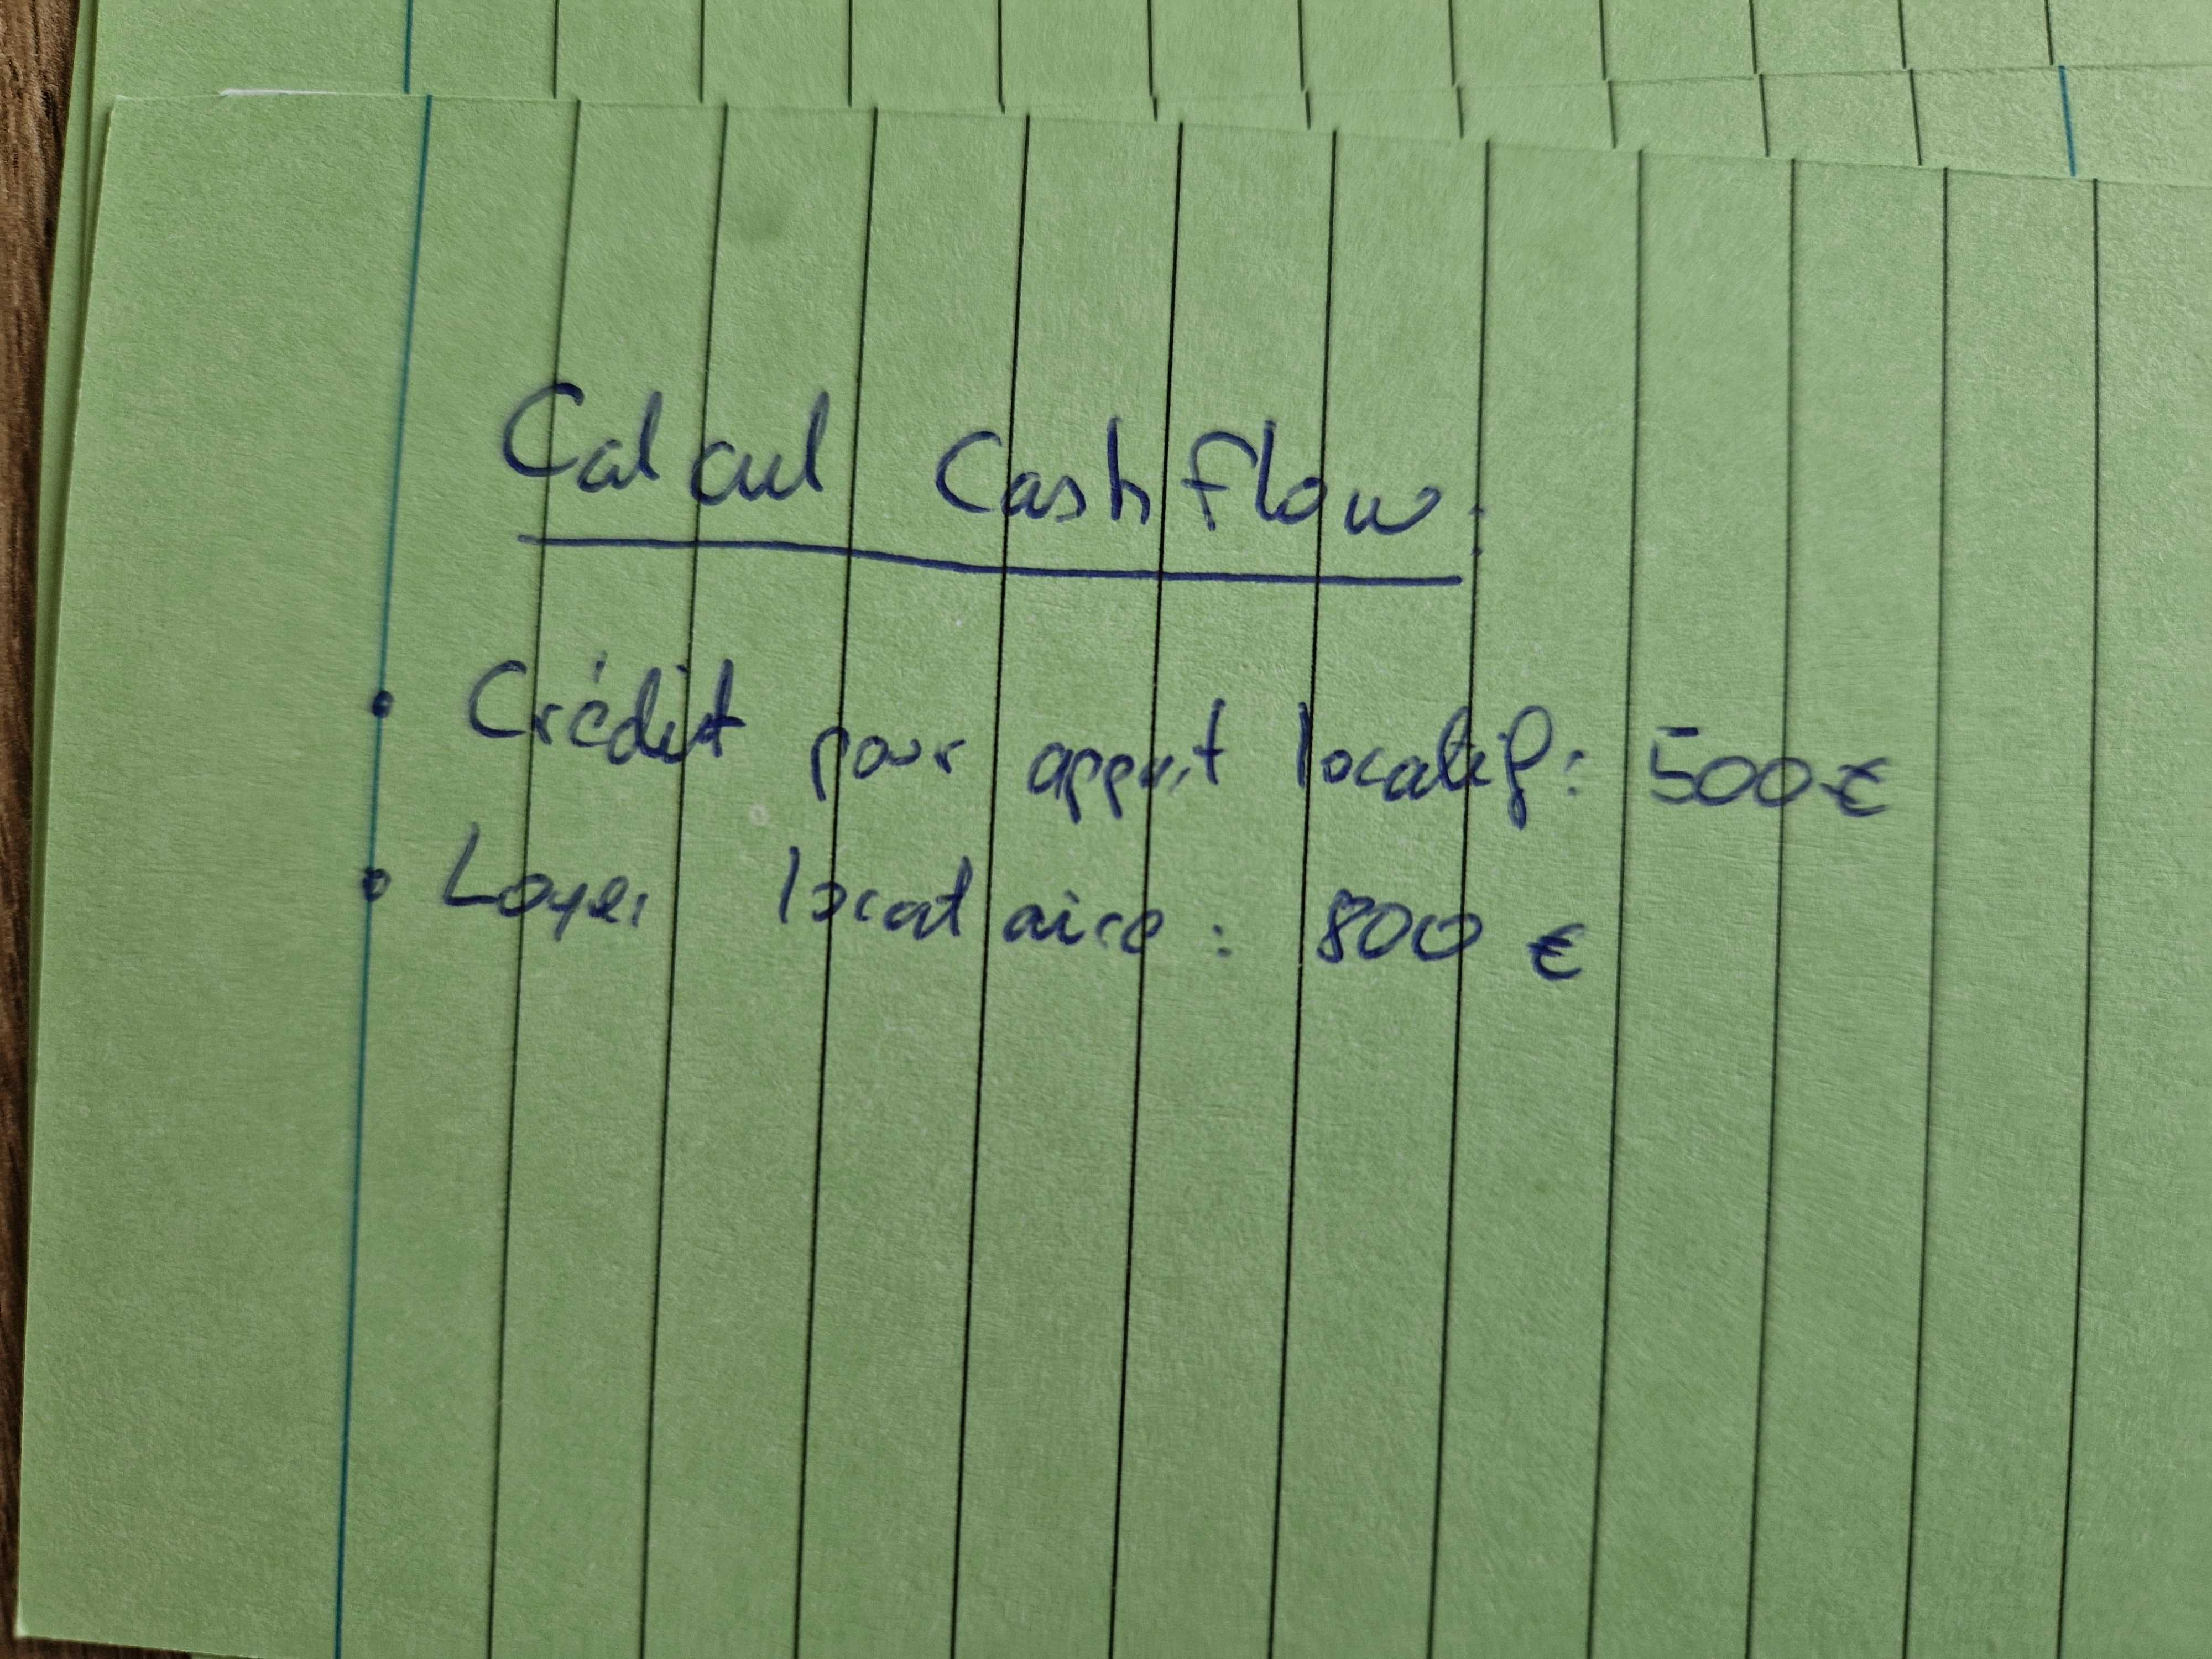 Calcul Cashflow :
• Crédit pour appart locatif : 500 €
• Loyer locataire : 800 €